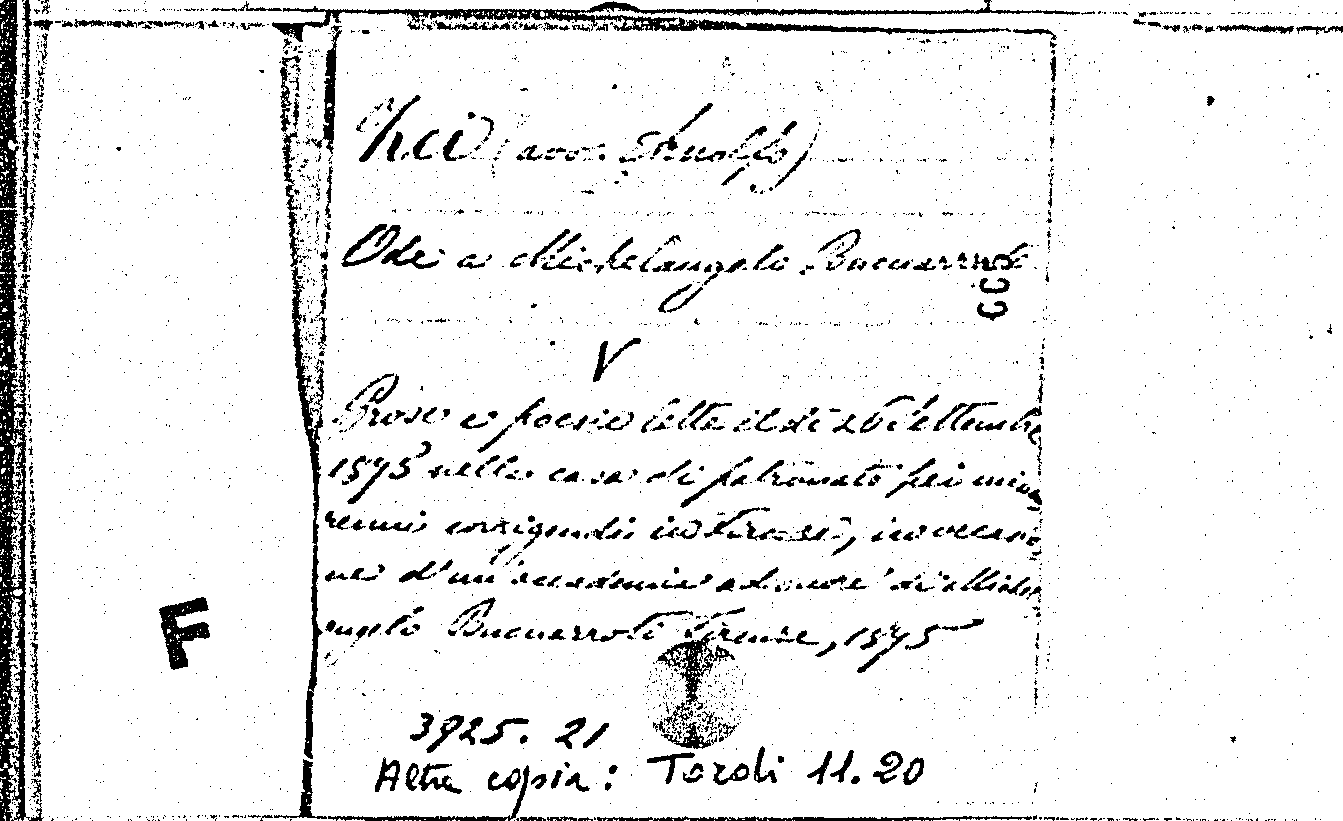 Ici (avv. Arnolfo)
Ode a Michelangelo Buonarroti
V
Prose e poesie lette il dì 26 Settembre
1875 nella casa di patronato pei mino
renni corrigendi in Firenze, in occasio
ne d'un'accademia ad onore di Michel
angelo Buonarroti Firenze, 1875
3925. 21
Altra copia: Tordi 11.20
F